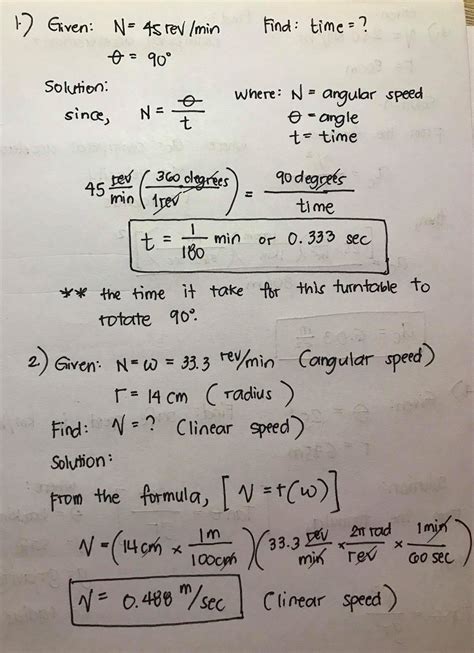 1.) Given: N = 45 rev/min Find: time = ?
θ = 90°
Solution: where: N = angular speed
since, N = θ/t θ = angle
t = time
45 rev/min (360 degrees/1 rev) = 90 degrees/time
t = 1/180 min or 0.333 sec
** the time it take for this turntable to
rotate 90°.
2.) Given: N = ω = 33.3 rev/min (angular speed)
r = 14 cm (radius)
Find: V = ? (linear speed)
Solution:
From the formula, [V = r(ω)]
V = (14 cm × 1m/100cm)(33.3 rev/min × 2π rad/rev × 1 min/60 sec)
V = 0.488 m/sec (linear speed)